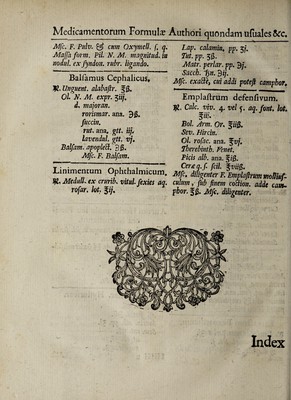 Medicamentorum Formulæ Authori quondam usuales &c.
Msc. F. Pulv. & cum Oxymell. s. q.
Massa form. Pil. N. M. magnitud. in
nodul. ex syndon. rubr. ligando.
Balsamus Cephalicus,
℞. Unguent. alabastr. ℥ß.
Ol. N. M. expr. ʒiij.
d. majoran.
rorismar. ana ℈ß.
succin.
rut. ana, gtt. iij.
lavendul. gtt. vj.
Balsam. apoplect. ℈ß.
Msc. F. Balsam.
Linimentum Ophthalmicum,
℞. Medull. ex crurib. vitul. sexies aq.
rosar. lot. ℥ij.
Lap. calamin, pp. ʒi.
Tut. pp. ʒß.
Matr. perlar. pp. ℈j.
Sacch. ♄n. ℈ij.
Msc. exactè, cui addi potest camphor.
Emplastrum defensivum.
℞. Calc. viv. 4. vel 5. aq. font. lot.
℥iii.
Bol. Arm. Or. ℥iiß.
Sev. Hircin.
Ol. rosac. ana ℥vj.
Therebinth. Venet.
Picis alb. ana ℥iß.
Ceræ q. s. scil. ℥viiß.
Msc. diligenter F. Emplastrum molliusculum,
sub finem coction. adde camphor.
ʒß. Msc. diligenter.
Index